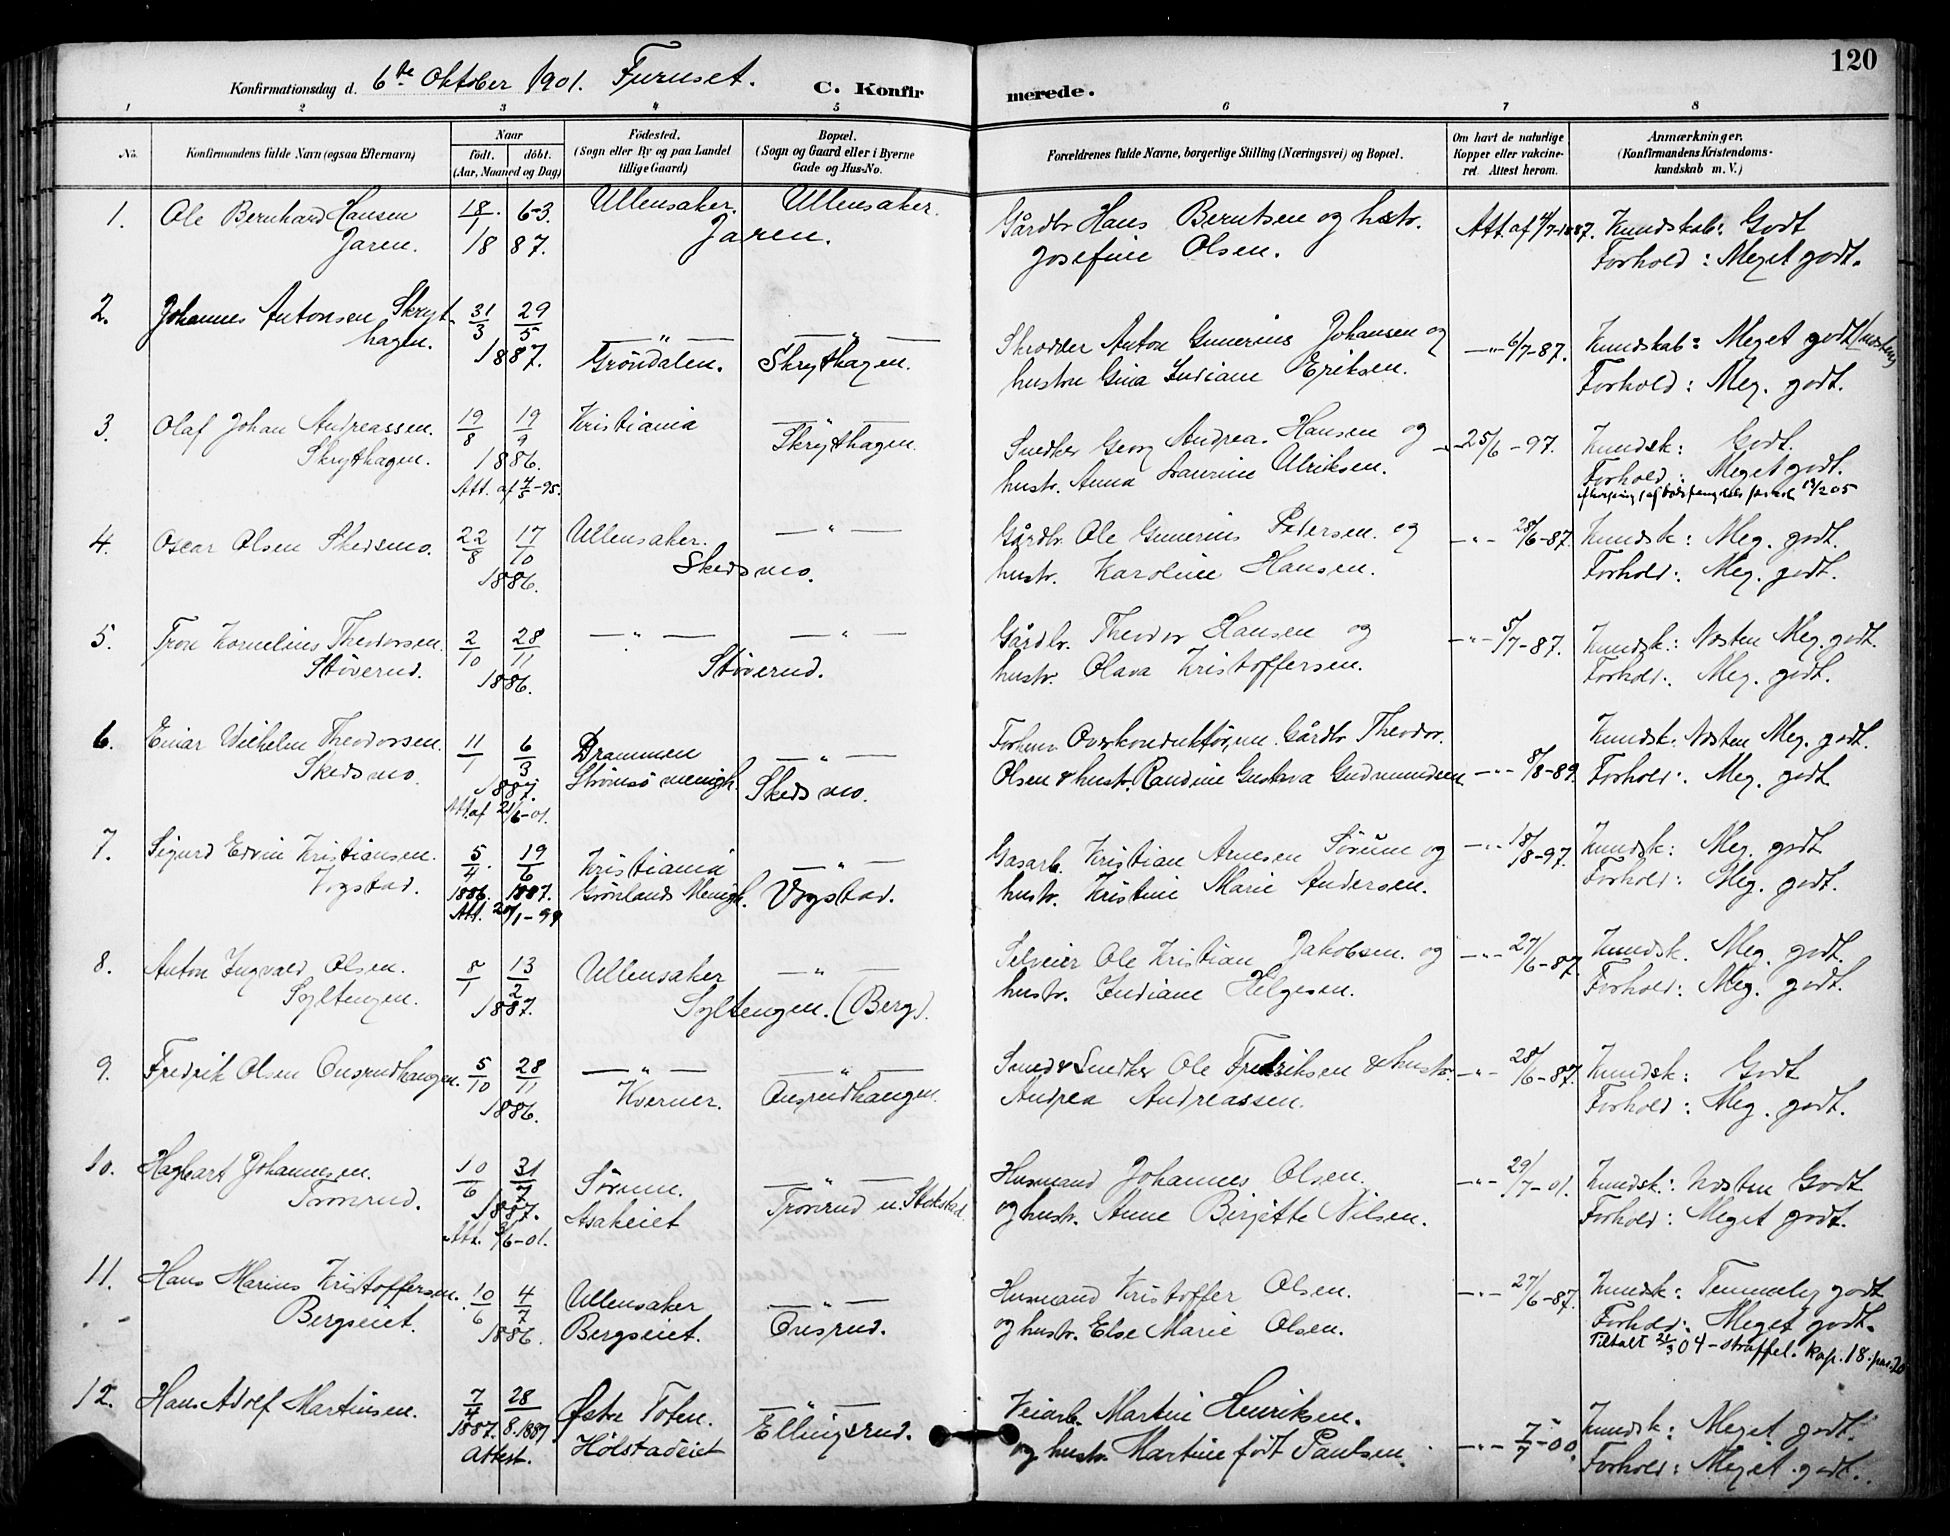 120
Konfirmationsdag d. 6te Oktober 1901. Furuset. C. Konfirmerede.
1 2 3 4 5 6 7 8
No. Konfirmandens fulde Navn (ogsaa Efternavn) Naar født. døbt. (Aar, Maaned og Dag) Fødested. (Sogn eller By og paa Landet tillige Gaard) Bopæl. (Sogn og Gaard eller i Byerne Gade og Hus-No. Forældrenes fulde Navne, borgerlige Stilling (Næringsvei) og Bopæl. Om havt de naturlige Kopper eller vakcineret. Attest herom. Anmærkninger. (Konfirmandens Kristendomskundskab m. V.)
1. Ole Bernhard Hansen 18/1 6-3. Ullensaker. Ullensaker. Gårdbr Hans Berntsen og hstr. Att. af 4/7-1887. Kundskab: Godt
Jaren. 1887. Jaren. Josefine Olsen. Forhold: Meget godt.
2. Johannes Antonsen Skryt- 31/3 29/5 —"— —"— Skrædder Anton Gunerius Johansen og —"— 6/7-87. Kundskab: Meget godt (næsten)
hagen. 1887. Grøndalen. Skrythagen. hustru Gina Indiane Eriksen. Forhold: Meg. godt.
3. Olaf Johan Andreassen. 19/8 19/9 Kristiania —"— Snedker Georg Andrea. Hansen og -"- 25/6-97. Kundsk: Godt.
Skrythagen. 1886. Skrythagen. hustr. Anna Laurine Ulriksen. Forhold: Meget godt.
Att. af 4/5-95.
4. Oscar Olsen Skedsmo. 22/8 17/10 Ullensaker. —"— Gårdbr. Ole Gunerius Pedersen. og —"— 28/6-87. Kundsk: Meg. godt.
1886. Skedsmo. hustr. Karoline Hansen. Forhold: Meg. godt.
5. Tron Kornelius Theodorsen. 2/10 28/11 —"— —"— Gårdbr. Theodor Hansen og —"— 5/7-87. Kundsk: Næsten Meg. godt.
Støverud. 1886. Støverud. hustr. Olava Kristoffersen. Forhold: Meg. godt.
6. Einar Wilhelm Theodorsen. 11/1 6/3 Drammen —"— Forhenv. Overkonduktør, nu. Gårdbr Theodor. Kundsk: Næsten Meg. godt.
Skedsmo. 1887. Strømsø menigh. Skedsmo. Olsen & hustr. Randine Gustava Gudmundsen —"— 8/8-89. Forhold: Meg. godt.
Att. af 21/6-01.
7. Sigurd Edvin Kristiansen. 5/4. 19/6 Kristiania —"— Gasarb. Kristian Arnesen Sørum og —"— 18/8-97. Kundsk: Meg. godt
Vogstad. 1886. 1887. Grønlands Menigh. Vogstad. hustr. Kristine Marie Andersen. Forhold: Meg. godt.
8. Anton Ingvald Olsen. 8/1 13/2 Ullensaker —"— Selveier Ole Kristian Jakobsen. og —"— 27/6-87. Kundsk. Meg. godt.
Syltengen. 1887. Syltengen. (Berg). hustr. Indiane Helgesen. Forhold: Meg. godt.
9. Fredrik Olsen Onsrudhaugen. 5/10 28/11 —"— —"— Smed & Snedker Ole Fredriksen & hustr. —"— 28/6-87. Kundsk: Godt
1886. Kverner. Onsrudhaugen. Andrea Andreassen. Forhold: Meg. godt.
10. Hagbart Johannesen. 10/6 31/7 Sørum. —"— Husmand Johannes Olsen. —"— 29/7-01. Kundsk: Næsten Godt
Trønrud. 1887. Asakeiet Trønrud u. Stokstad og hustr. Anne Birgitte Nilsen. Forhold: Meget godt.
11. Hans Marius Kristoffersen. 10/6 4/7 Ullensaker —"— Husmand Kristoffer Olsen. —"— 27/6-87. Kundsk: Temmelig godt
Bergseiet. 1886. Bergseiet. Onsrud. og hustr. Else Marie Olsen. Forhold: Meget godt.
Tiltalt 04 - straffel. Kap. 18. par. 20
12. Hans Adolf Martinsen. 7/4 28 Østre Toten. —"— Veiarb. Martin Henriksen. Kundsk: Meget godt.
1887. 8. 1887 Hølstadeiet Ellingsrud. og hustr. Martine født Paulsen. —"— 7/7-00. Forhold: Meget godt.
Attest.